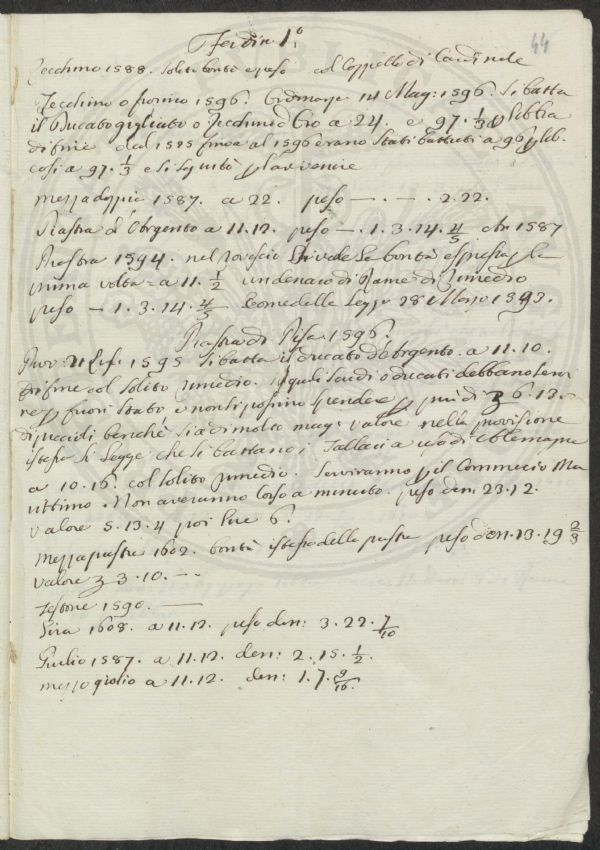 Ferdin 1.º
44
Zecchino 1588. solita bontà e peso col Cappello di Cardinale
Zecchino o fiorino 1596. Ordinazne 14 Mag: 1596. Si batta
il Ducato gigliato o Zecchino d'Oro a 24. e 97. 1/3 p libbra
di fine dal 1595 fino al 1596 erano stati battuti a 96 p lib.
così a 97. 1/3 e si seguitò p l'avvenire
mezza doppia 1587. a 22. peso —. —. 2. 22.
Piastra d'Argento a 11. 12. peso —. 1. 3. 14. 4/5 1587
Piastra 1594. nel rovescio la bontà espressa p la
prima volta = a 11. 1/2 un denaro di Rame di rimedio
peso — 1. 3. 14. 4/5 Come della Legge 28 Marzo 1593.
Piastra di Pisa 1596.
1595 si batta il ducato d'Argento. a 11. 10.
di fine col solito rimedio. i quali scudi o ducati debbano
p fuori Stato e non si possino spendere p più di 6. 13. -
di piccioli benché sia di molto magr valore nella provisione
istessa si legge che si battano i Tallari a uso di Alemagna
a 10. 16. col solito rimedio. Serviranno p il Commercio
. Non averanno corso a minuto. peso den: 23. 12.
valore 5. 13. 4 poi lire 6.
mezza piastra 1602. bontà istessa della piastra peso den. 13. 19 2/3
valore 3. 10. —
Testone 1590. —
Lira 1608. a 11. 12. peso den: 3. 22. 7/10
Giulio 1587. a 11. 12. den: 2. 15. 1/2.
mezzo giulio a 11. 12. den: 1. 7. 9/16.